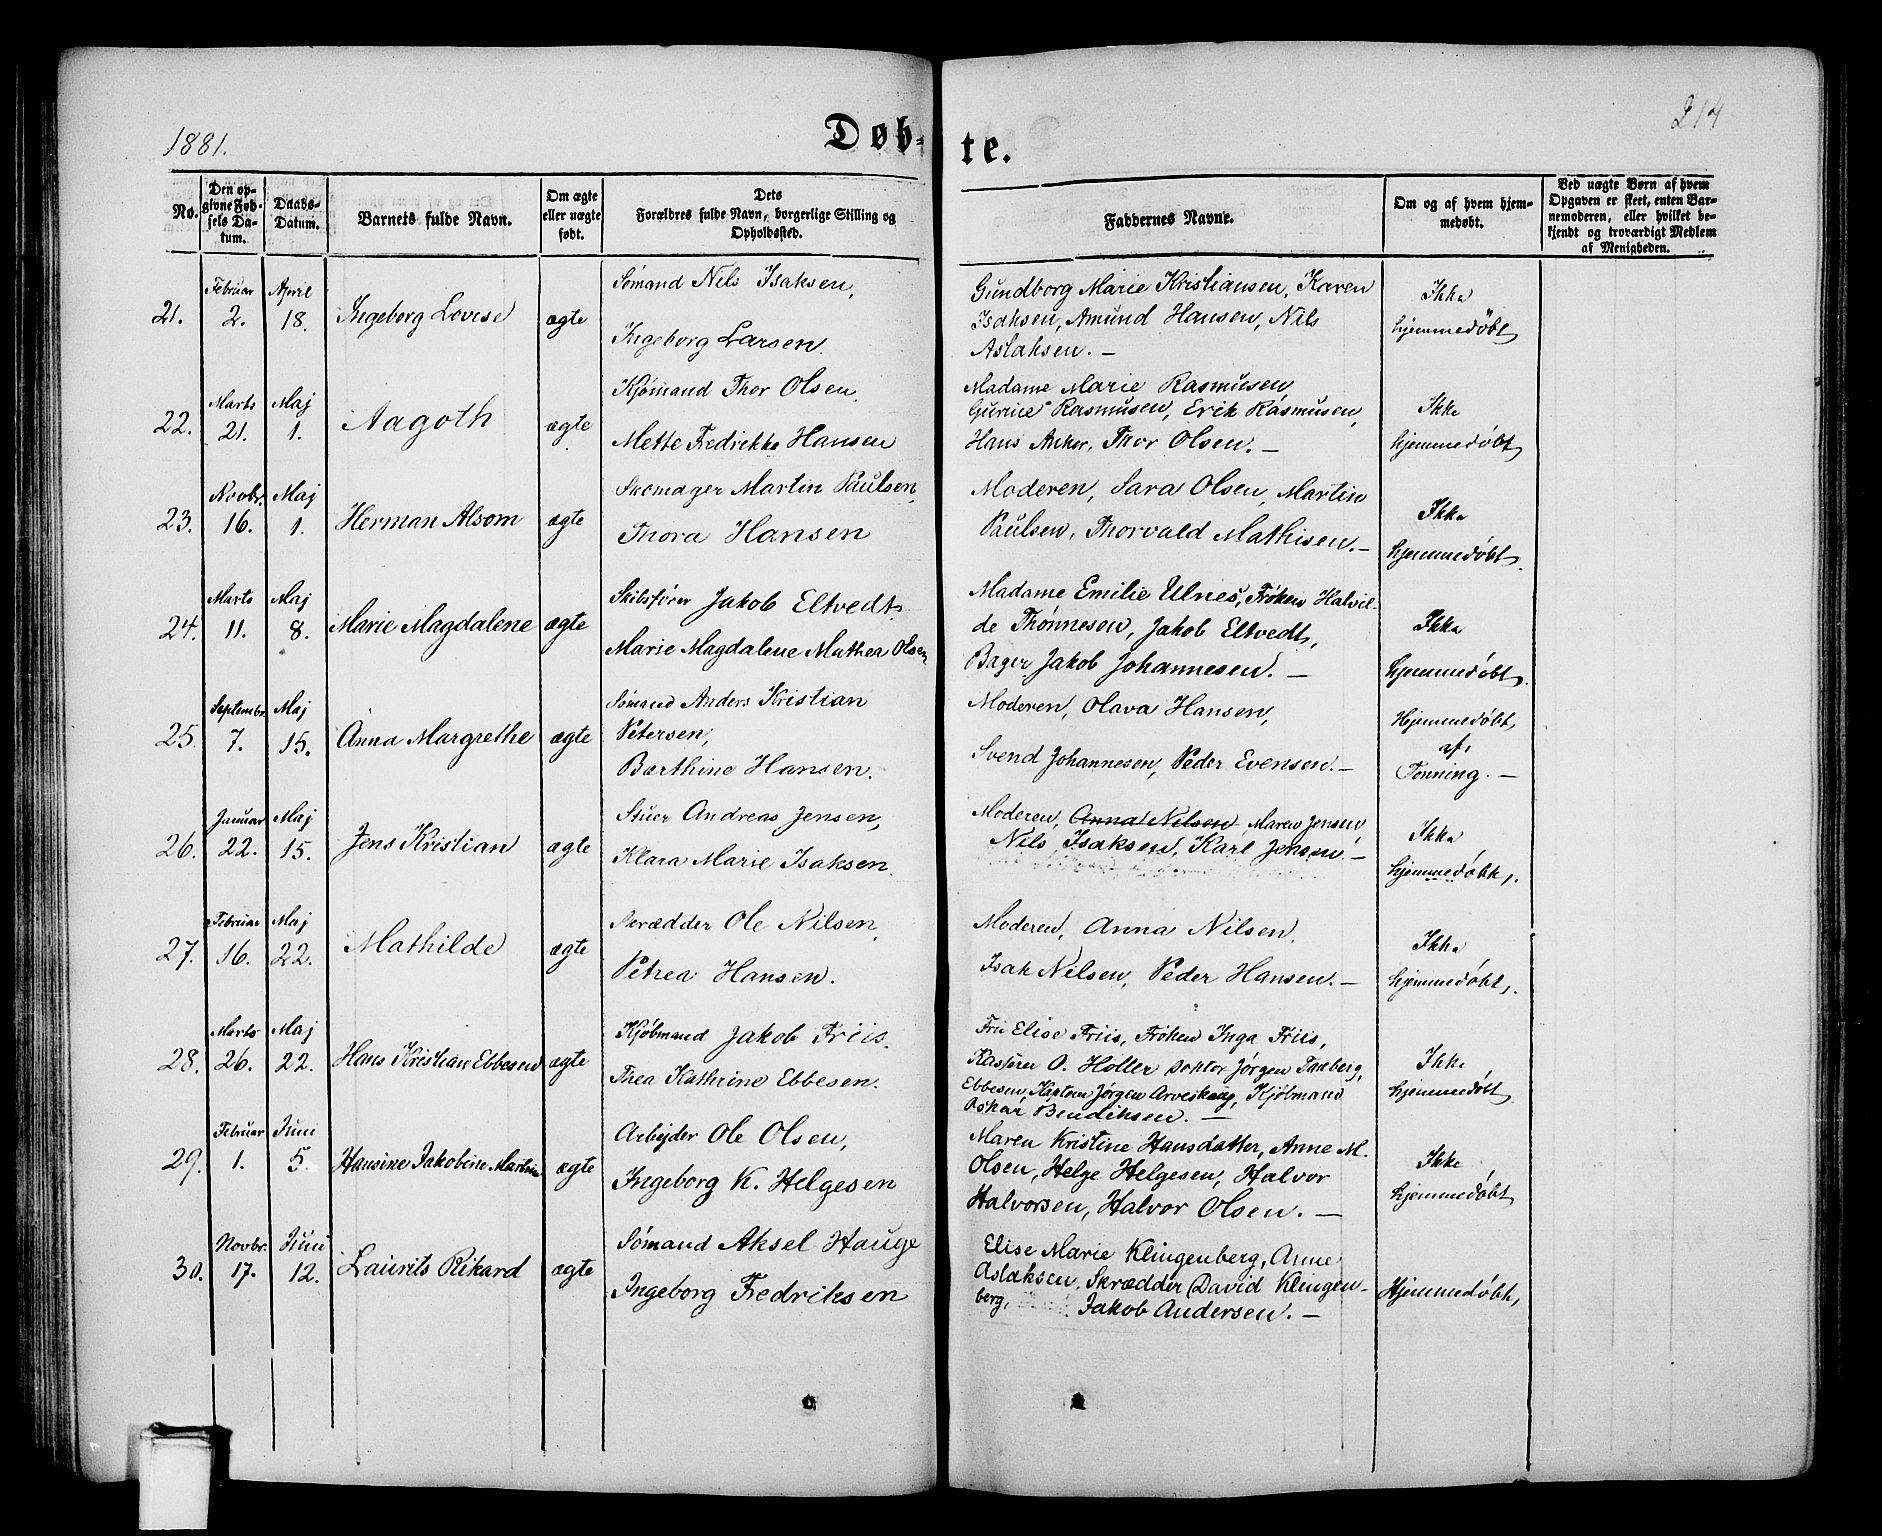 1881.
Døb-
te.
214
No.
Den op-
givne Fød-
sels Da-
tum.
Daabs-
Datum.
Barnets fulde Navn.
Om ægte
eller uægte
født.
Dets
Forældres fulde Navn, borgerlige Stilling og
Opholdssted.
Faddernes Navne.
Om og af hvem hjem-
medøbt.
Ved uægte Børn af hvem
Opgaven er skeet, enten Bar-
nemoderen, eller hvilket be-
kjendt og troværdigt Medlem
af Menigheden.
21.
Februar
2.
April
18.
Ingeborg Lovise
ægte
Sømand Nils Isaksen,
Ingeborg Larsen.
Gundborg Marie Kristiansen, Karen
Isaksen, Amund Hansen, Nils
Aslaksen. —
Ikke
hjemmedøbt
22.
Marts
21.
Maj
1.
Aagoth
ægte
Kjømand Thor Olsen,
Mette Fredrikke Hansen
Madame Marie Rasmusen
Gurine Rasmusen, Erik Rasmusen,
Hans Anker, Thor Olsen. —
Ikke
hjemmedøbt
23.
Novbr.
16.
Maj
1.
Herman Alsom
ægte
Skomager Martin Paulsen,
Thora Hansen
Moderen, Sara Olsen, Martin
Paulsen, Thorvald Mathisen. —
Ikke
hjemmedøbt.
24.
Marts
11.
Maj
8.
Marie Magdalene
ægte
Skibsfører Jakob Eltvedt,
Marie Magdalene Mathea Olsen
Madame Emilie Ulnes, Frøken Halvil-
de Thønnesen, Jakob Eltvedt,
Bager Jakob Johannesen. —
Ikke
hjemmedøbt.
25.
Septembr.
7.
Maj
15.
Anna Margrethe
ægte
Sømand Anders Kristian
Petersen,
Barthine Hansen.
Moderen, Olava Hansen,
Svend Johannesen, Peder Evensen. —
Hjemmedøbt,
af,
Tønning. —
26.
Januar
22.
Maj
15.
Jens Kristian
ægte
Stuer Andreas Jensen,
Klara Marie Isaksen
Moderen, Anna Nilsen, Maren Jensen,
Nils Isaksen, Karl Jensen. —
Ikke
hjemmedøbt,.
27.
Februar
16.
Maj
22.
Mathilde
ægte
Skrædder Ole Nilsen,
Petrea Hansen.
Moderen, Anna Nilsen,
Isak Nilsen, Peder Hansen. —
Ikke
hjemmedøbt,.
28.
Marts
26.
Maj
22.
Hans Kristian Ebbesen
ægte
Kjøbmand Jakob Friis.
Thea Kathrine Ebbesen.
Fru Elise Friis, Frøken Inga Friis,
O. Holler Doktor Jørgen Tanberg,
Ebbesen, Kaptein Jørgen Arveskoug, Kjøbmand
Oskar Bendiksen. —
Ikke
hjemmedøbt
29.
Februar
1.
Juni
5.
Hansine Jakobine Martine
ægte
Arbejder Ole Olsen,
Ingeborg K. Helgesen
Maren Kristine Hansdatter, Anne M.
Olsen, Helge Helgesen, Halvor
Halvorsen, Halvor Olsen. —
Ikke
hjemmedøbt
30.
Novbr.
17.
Juni
12.
Laurits Rikard
ægte
Sømand Aksel Hauge
Ingeborg Fredriksen
Elise Marie Klingenberg, Anne
Aslaksen, Skrædder David Klingen-
berg, Jakob Andersen. —
Hjemmedøbt,